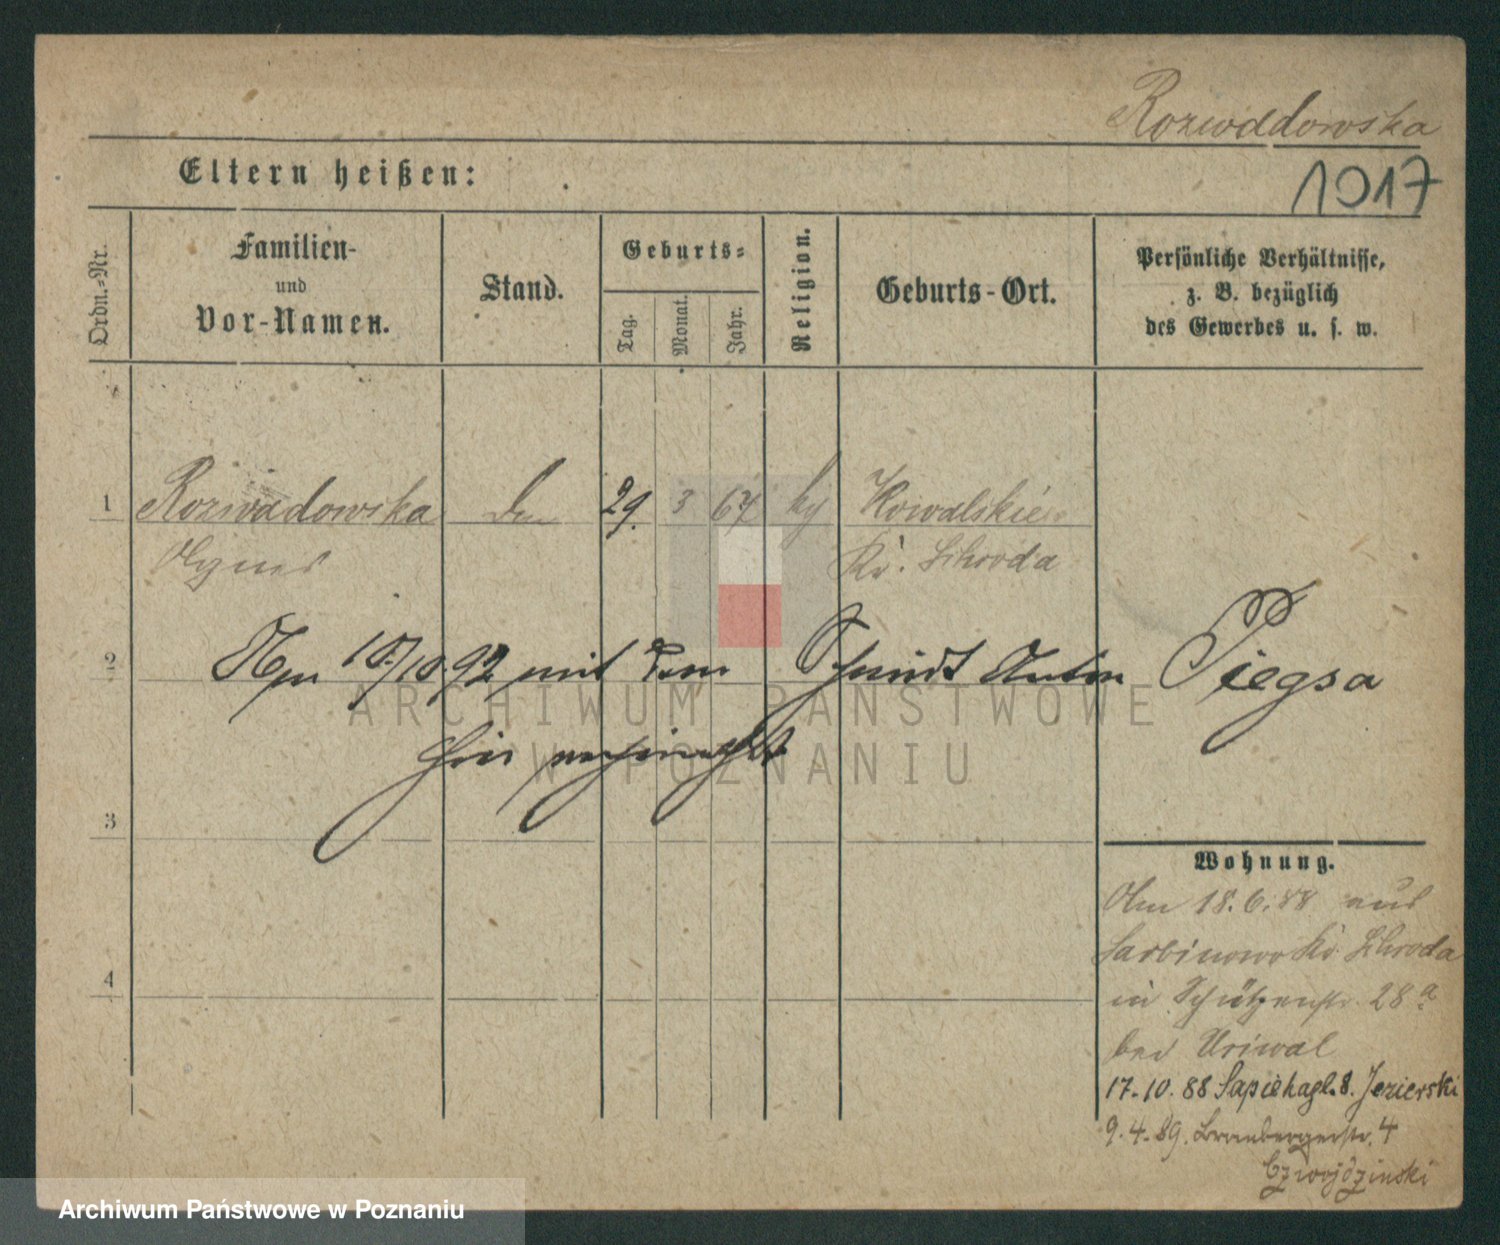 Rozwadowska
1017
Eltern heißen:
Ordn.-Nr.
Familien-
und
Vor-Namen.
Stand.
Geburts-
Tag.
Monat.
Jahr.
Religion.
Geburts-Ort.
Persönliche Verhältnisse,
z. B. bezüglich
des Gewerbes u. s. w.
1 Rozwadowska 29. 3 67 Kowalskie
Agnes Kr. Schroda
2 10/10.92 mit dem Schmidt Anton Piegsa
hier
ARCHIWUM PAŃSTWOWE
W POZNANIU
3
4
Wohnung.
Am 18.6.88 aus
Sarbinowo Kr. Schroda
in Schützenstr. 28a
bei Uriwal
17.10.88 Sapiehapl. 8. Jezierski
9.4.89. Brombergerstr. 4
Czwojdzinski
Archiwum Państwowe w Poznaniu